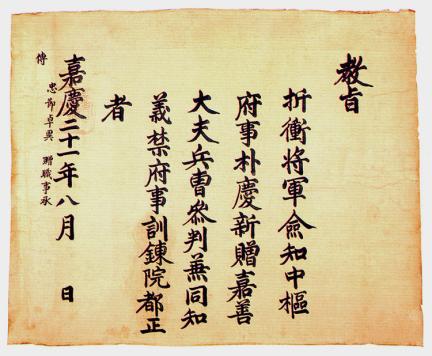 教旨
折衝將軍僉知中樞
府事朴慶新贈嘉善
大夫兵曺叅判兼同知
義禁府事訓鍊院都正
者
嘉慶二十一年八月 日
忠節卓異 贈職事承
傳